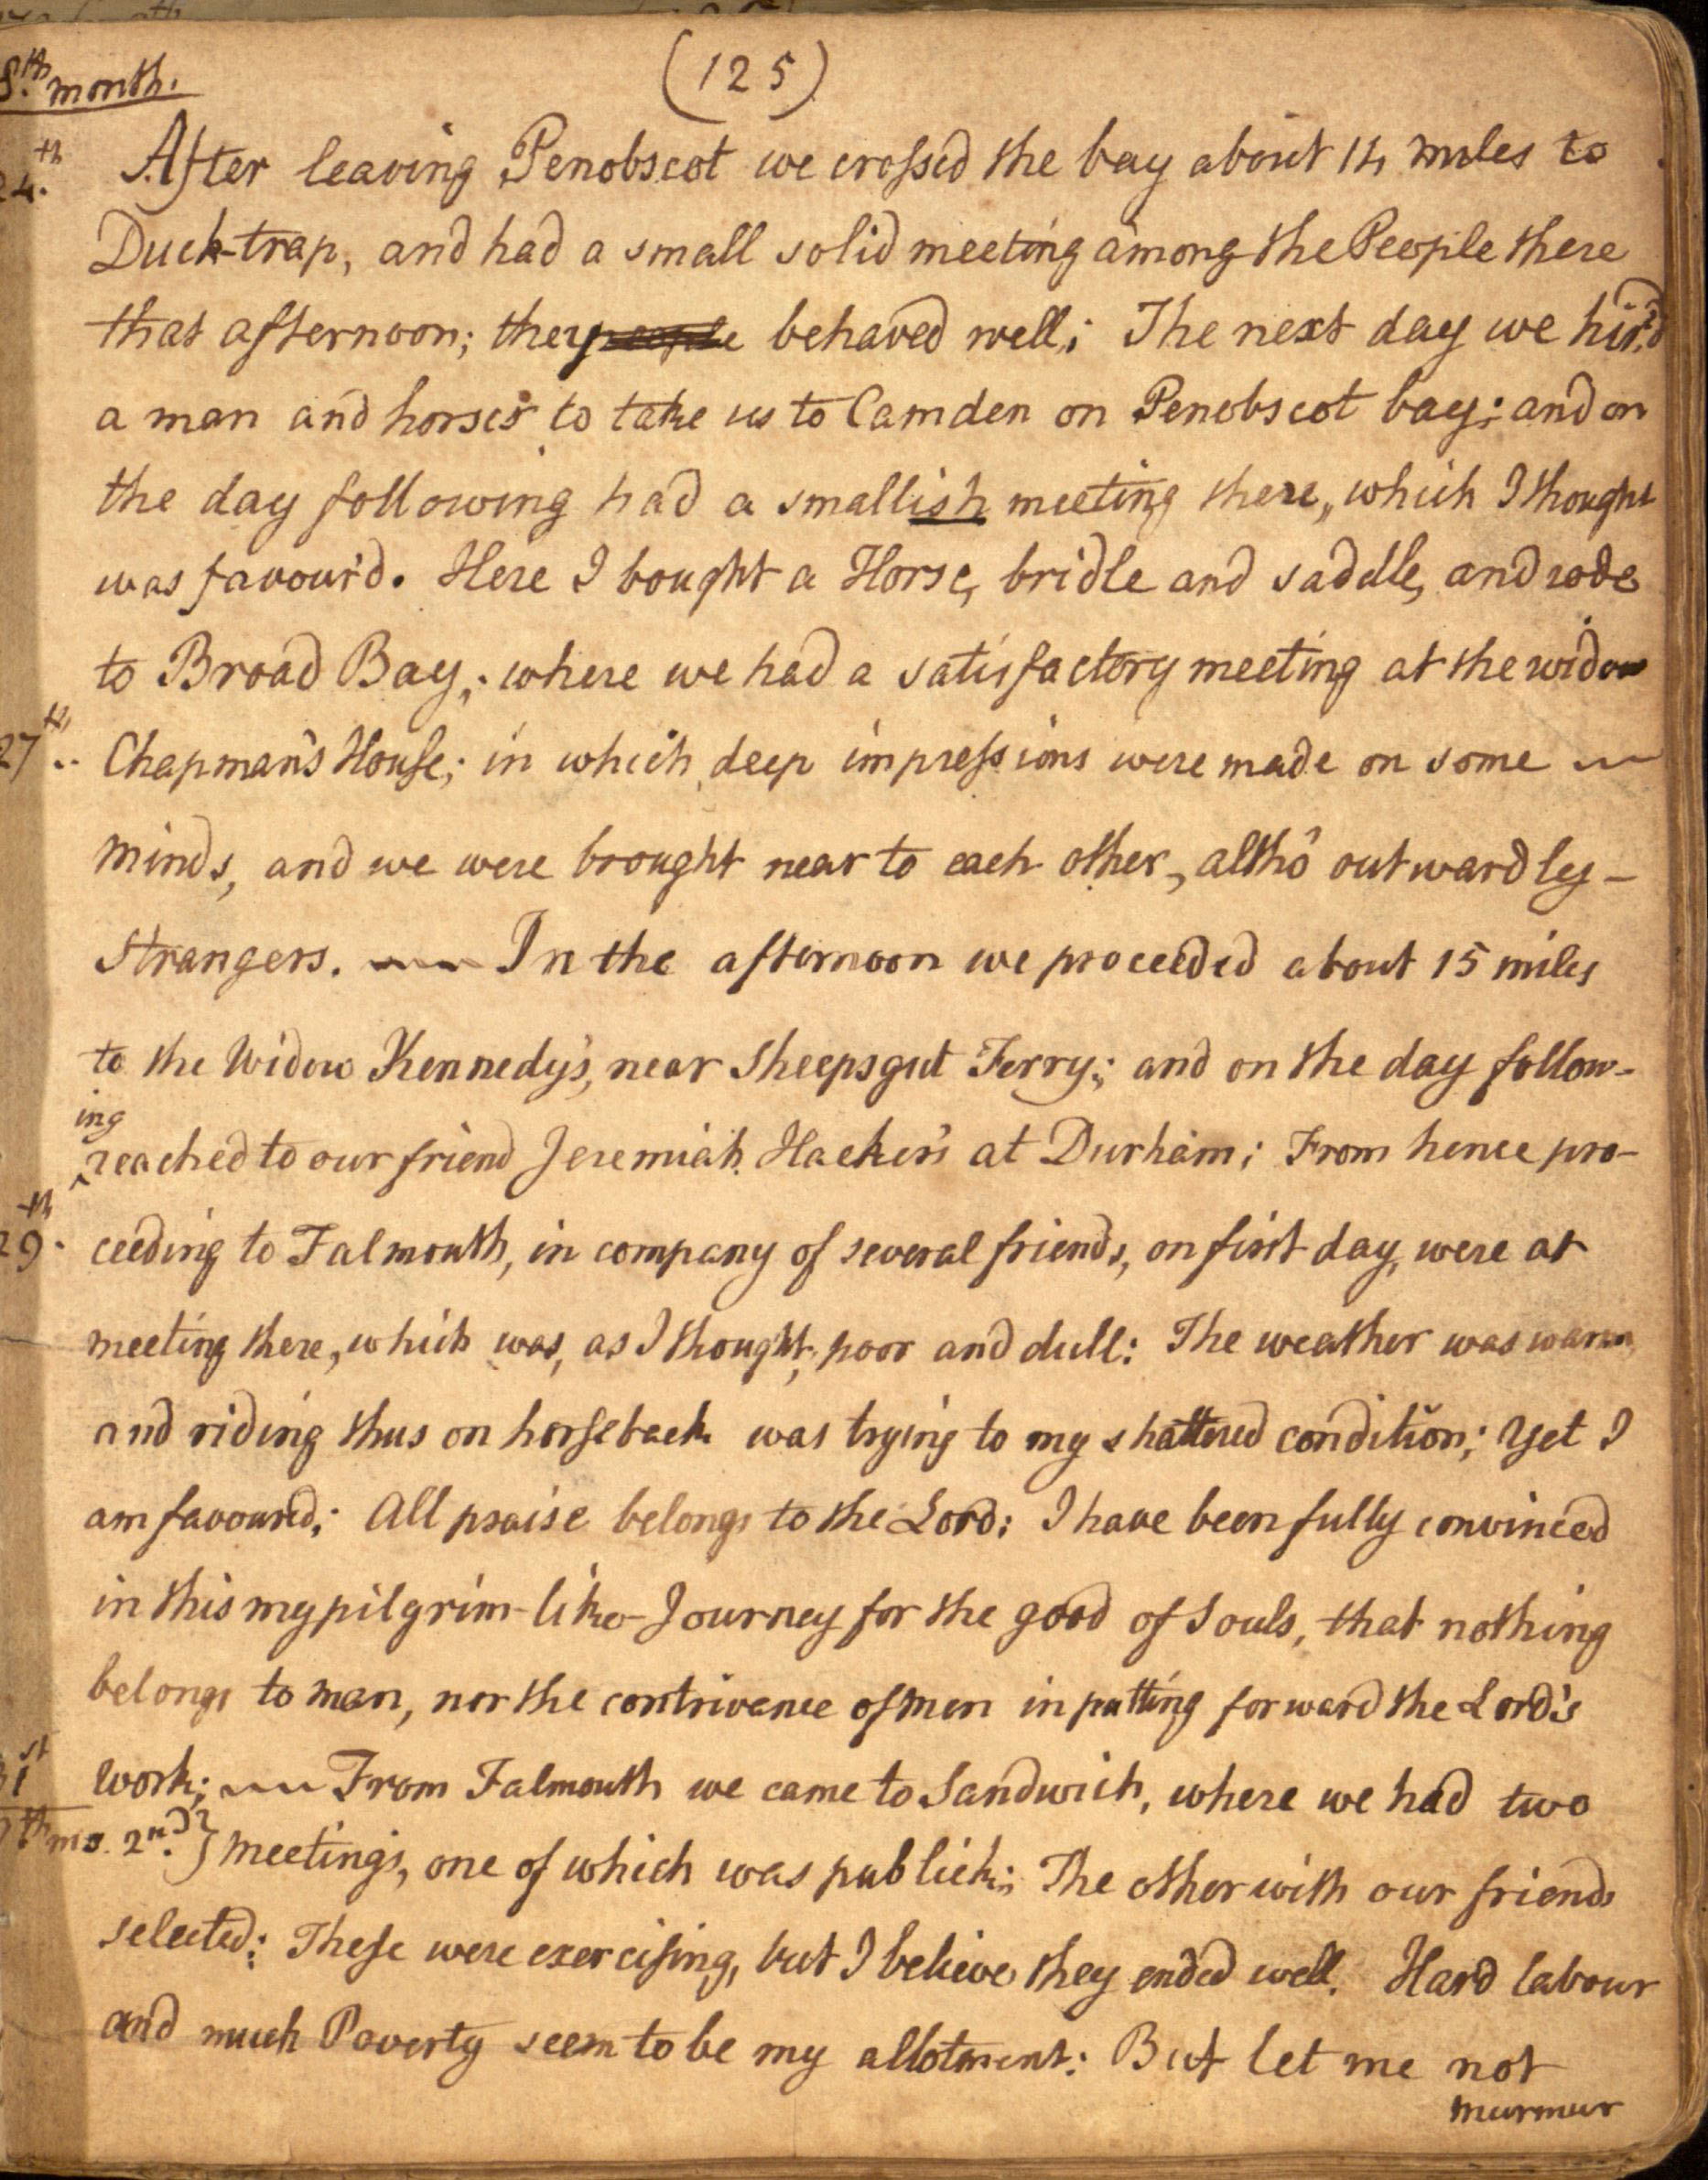 8th. month.
(125)
24th. After leaving Penobscot we crossed the bay about 14 miles to
Duck-trap, and had a small solid meeting among the People there
that afternoon; they people behaved well; The next day we hir'd
a man and horses to take us to Camden on Penobscot bay; and on
the day following had a smallish meeting there, which I thought
was favour'd. Here I bought a Horse, bridle and saddle, and rode
to Broad Bay; where we had a satisfactory meeting at the widow
27th.. Chapman's House; in which deep impressions were made on some
minds, and we were brought near to each other, altho' outwardly -
Strangers. In the afternoon we proceeded about 15 miles
to the Widow Kennedy's, near Sheepsgut Ferry; and on the day follow-
ing
^reached to our friend Jeremiah Hacker's at Durham; From hence pro-
29th. ceeding to Falmouth, in company of several friends, on first day, were at
meeting there, which was, as I thought, poor and dull: The weather was warm,
and riding thus on horseback was trying to my shattered condition; yet I
am favoured; All praise belongs to the Lord: I have been fully convinced
in this my pilgrim-like-Journey for the good of Souls, that nothing
belongs to man, nor the contrivance of men in putting forward the Lord's
31st work; From Falmouth we came to Sandwich, where we had two
9th mo. 2nd.} meetings, one of which was publick; The other with our friends
selected: These were exercising, but I believe they ended well. Hard labour
and much Poverty seem to be my allotment: But let me not
murmur